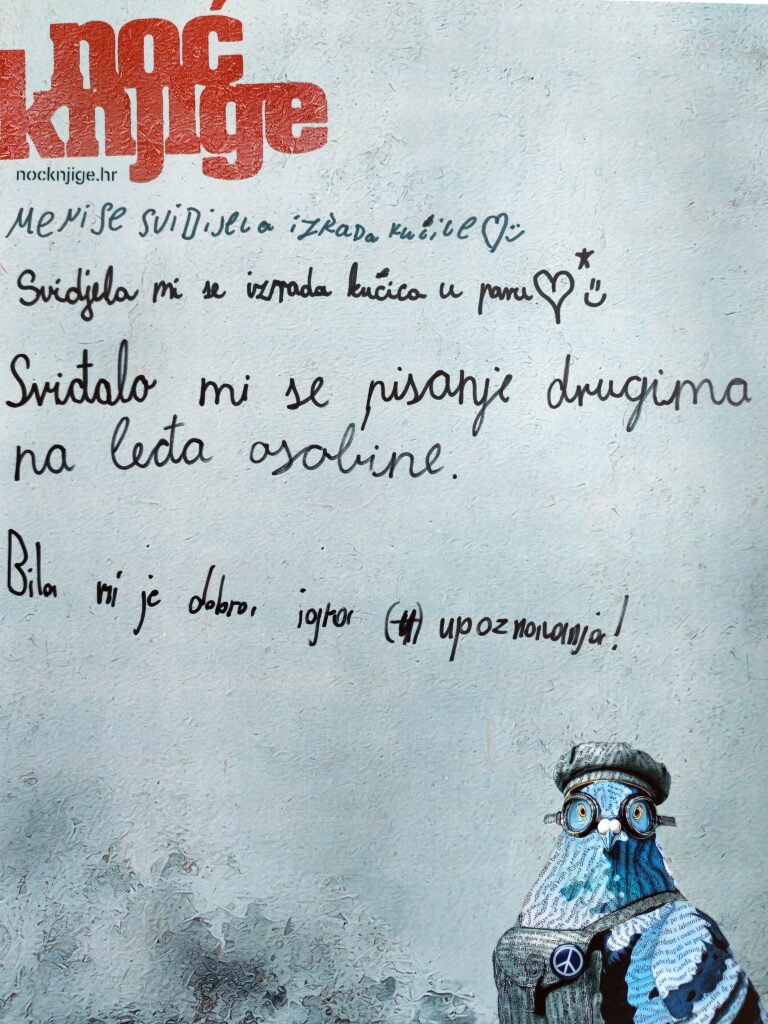 noć
knjige
nocknjige.hr
MENI SE SVIDIJELA IZRADA KUČICE
Svidjela mi se izrada kućica u paru
Sviđalo mi se pisanje drugima
na leđa osobine.
Bila mi je dobra igra () upoznavanja!